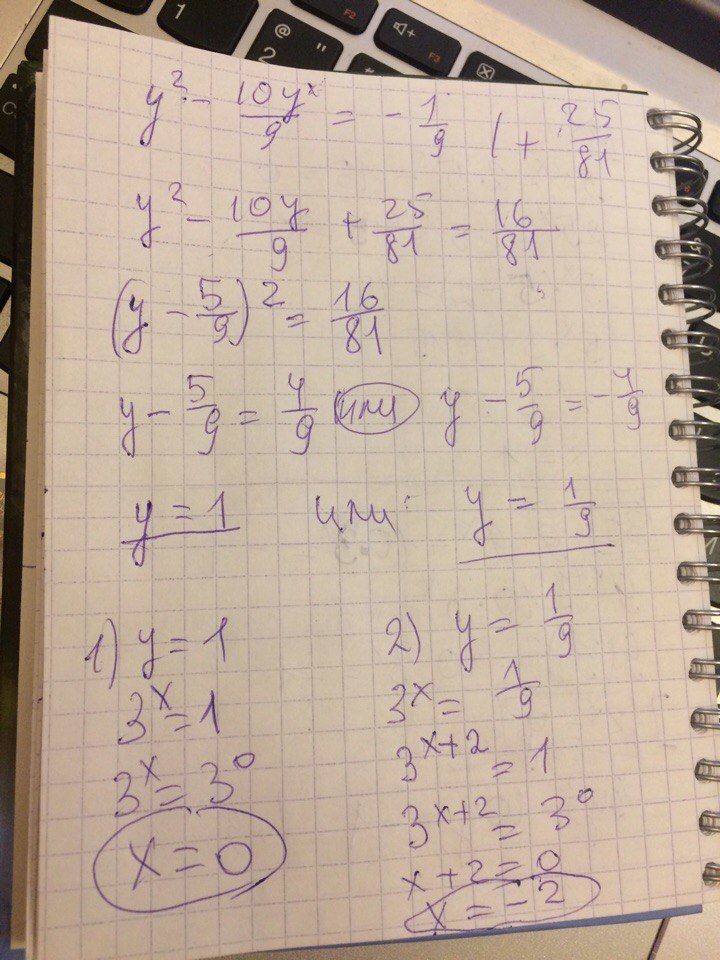 y² - 10yˣ/9 = - 1/9 | + 25/81
y² - 10y/9 + 25/81 = 16/81
(y - 5/9)² = 16/81
y - 5/9 = 4/9 или y - 5/9 = - 4/9
y = 1 или: y = 1/9
1) y = 1
3ˣ = 1
3ˣ = 3⁰
x = 0
2) y = 1/9
3ˣ = 1/9
3ˣ⁺² = 1
3ˣ⁺² = 3⁰
x + 2 = 0
x = -2
F2
F3
@
2
"